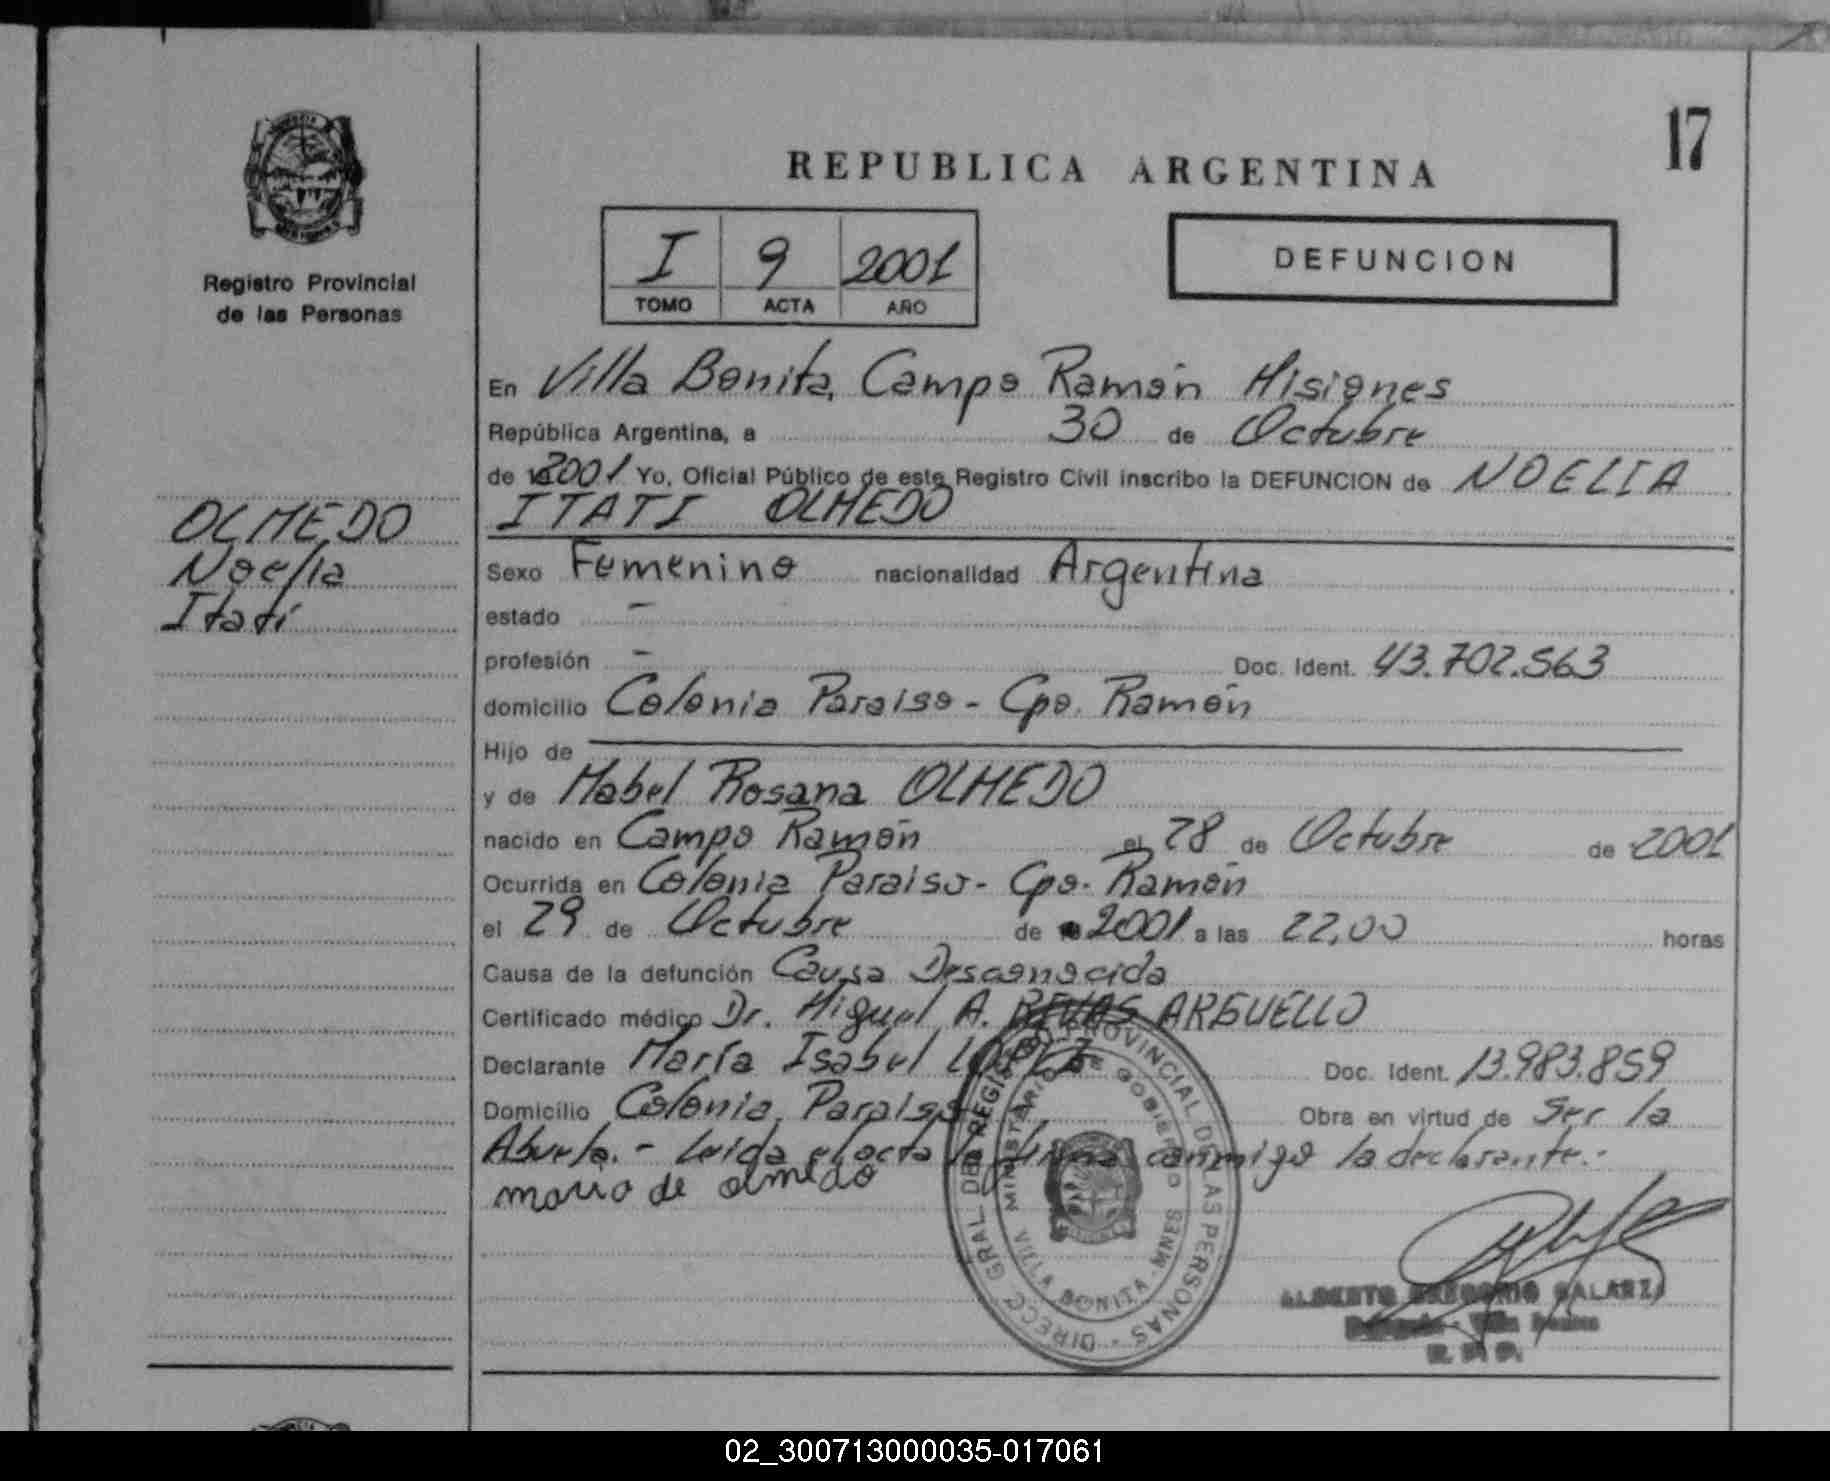 17
REPUBLICA ARGENTINA
Registro Provincial
de las Personas
I 9 2001
TOMO ACTA AÑO
DEFUNCION
OLMEDO
Noelia
Itatí
En Villa Bonita, Campo Ramón Misiones
República Argentina, a 30 de Octubre
de 2001 Yo, Oficial Público de este Registro Civil inscribo la DEFUNCION de NOELIA
ITATI OLMEDO
Sexo Femenino nacionalidad Argentina
estado -
profesión - Doc. Ident. 43.702.563
domicilio Colonia Paraiso - Cpo. Ramón
Hijo de
y de Mabel Rosana OLMEDO
nacido en Campo Ramón el 28 de Octubre de 2001
Ocurrida en Colonia Paraiso - Cpo. Ramón
el 29 de Octubre de 2001 a las 22,00 horas
Causa de la defunción Causa Desconocida
Certificado médico Dr. Miguel A. ARGUELLO
Declarante María Isabel Doc. Ident. 13.983.859
Domicilio Colonia Paraiso Obra en virtud de Ser la
Abuela. - Leida el acta la firma conmigo la declarante.-
maria de olmedo
DIRECC. GRAL. DEL REGISTRO PROVINCIAL DE LAS PERSONAS -
MINISTERIO DE GOBIERNO
VILLA BONITA - MNES
ALBERTO GREGORIO GALARZA
02_300713000035-017061